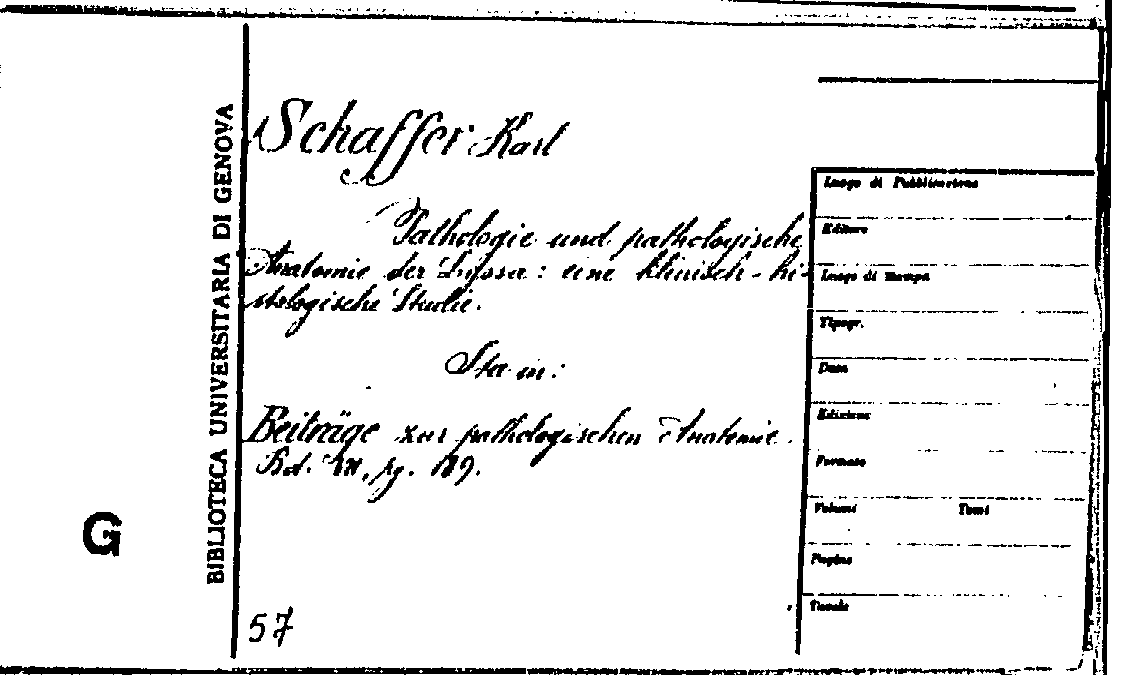 BIBLIOTECA UNIVERSITARIA DI GENOVA
G
Schaffer Karl
Pathologie und pathologische
Anatomie der Lyssa: eine klinisch-hi-
stologische Studie.
Sta in:
Beiträge zur pathologischen Anatomie.
Bd. VII, pg. 189.
57
Luogo di Pubblicazione
Editore
Luogo di Stampa
Tipogr.
Data
Edizione
Formato
Volumi Tomi
Pagine
Tavole